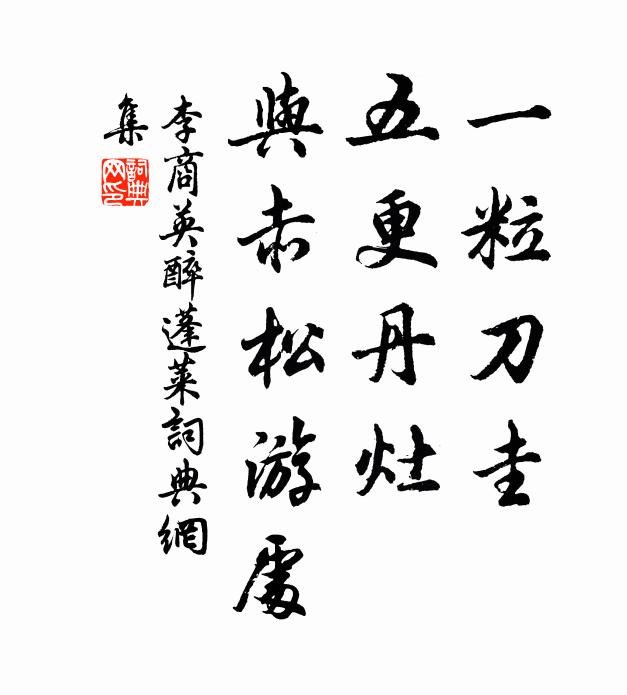 一粒刀圭
五更丹灶
與赤松游處
李商英醉蓬萊詞典網
集
詞典
网印